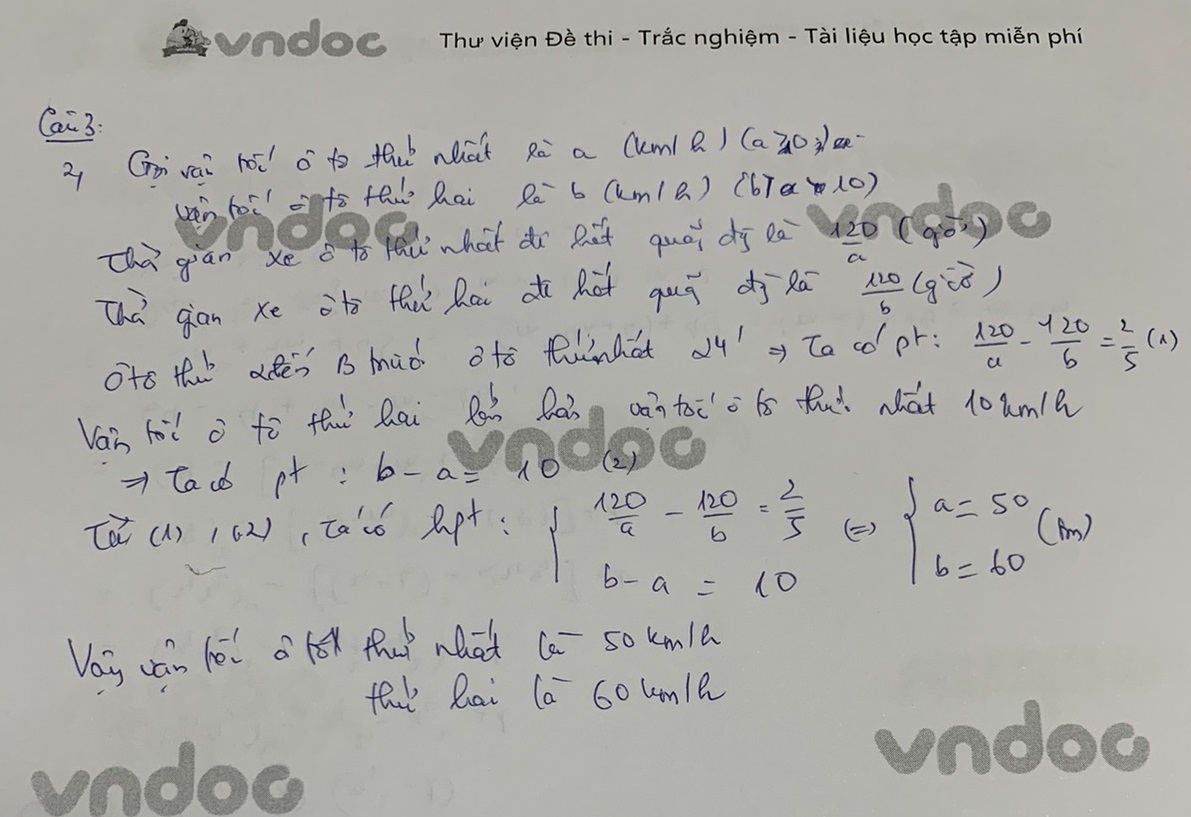 vndoc Thư viện Đề thi - Trắc nghiệm - Tài liệu học tập miễn phí
Câu 3:
2, Gọi vận tốc ô tô thứ nhất là a (km/h) (a>0)
vận tốc ô tô thứ hai là b (km/h) (b>10)
vndoc vndoc
Thời gian xe ô tô thứ nhất đi hết quãng đg là 120/a (giờ)
Thời gian xe ô tô thứ hai đi hết quãng đg là 120/b (giờ)
Ô tô thứ 2 đến B trước ô tô thứ nhất 24' => Ta có pt: 120/a - 120/b = 2/5 (1)
Vận tốc ô tô thứ hai lớn hơn vận tốc ô tô thứ nhất 10 km/h
vndoc
=> Ta có pt : b - a = 10 (2)
Từ (1), (2), Ta có hpt: { 120/a - 120/b = 2/5 <=> { a = 50
b - a = 10 b = 60 (tm)
Vậy vận tốc ô tô thứ nhất là 50 km/h
thứ hai là 60 km/h
vndoc vndoc